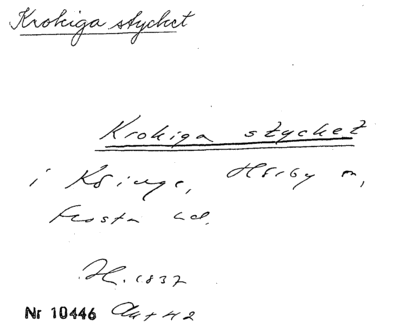 Krokiga stycket
Krokiga stycket
i Ksinge, Hörby sn,
Frosta hd.
H. 1837
Nr 10446 Akt 42